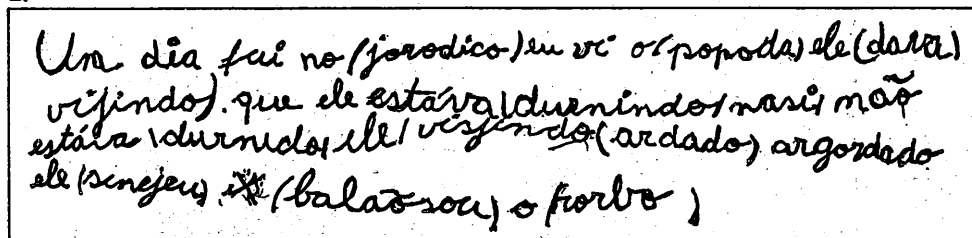 Um dia fui no (jorodico) eu vi o (popoda) ele (dava)
vijindo). que ele estáva (durnindo) masi não
estáva (durnido) ele (visjindo (ardado) argordado
ele (senejeu) (balaõsou) o (korbo)